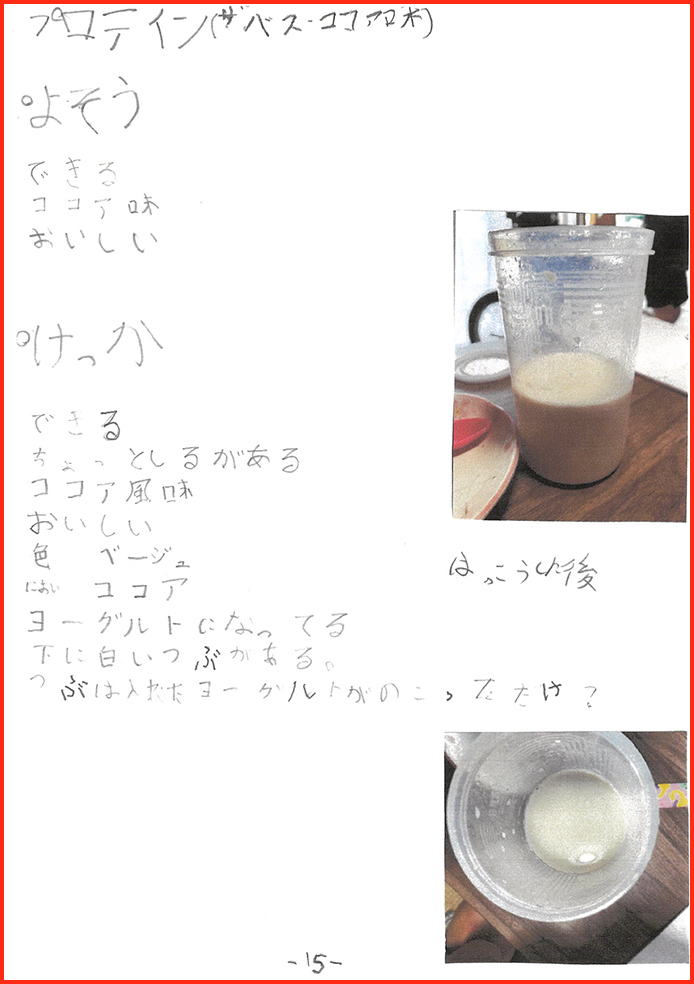 プロテイン(ザバス-ココア味)
○よそう
できる
ココア味
おいしい
○けっか
できる
ちょっとしるがある
ココア風味
おいしい
色 ベージュ
におい ココア
ヨーグルトになってる
下に白いつぶがある。
つぶは入れたヨーグルトがのこっただけ?
はっこうした後
-15-